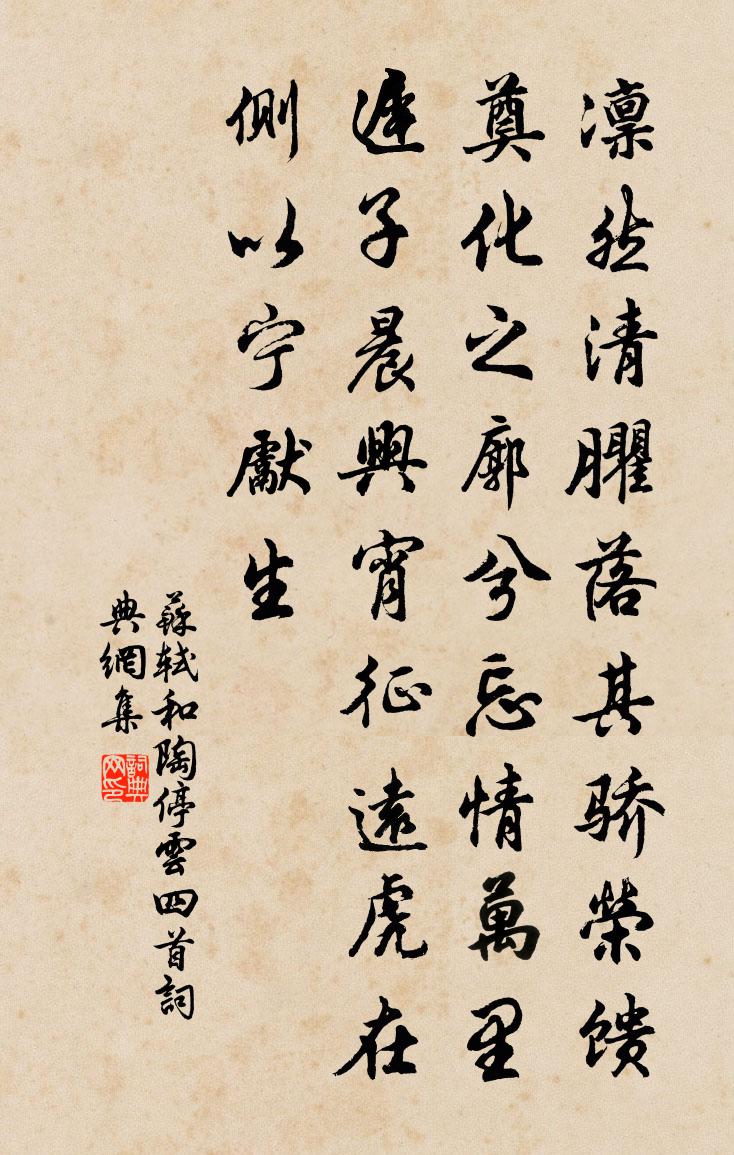 凛然清臞落其骄榮馈
奠化之廓兮忘情萬里
遲子晨興宵征遠虎在
側以宁獻生
蘇軾和陶停雲四首詞
典網集
詞典网印